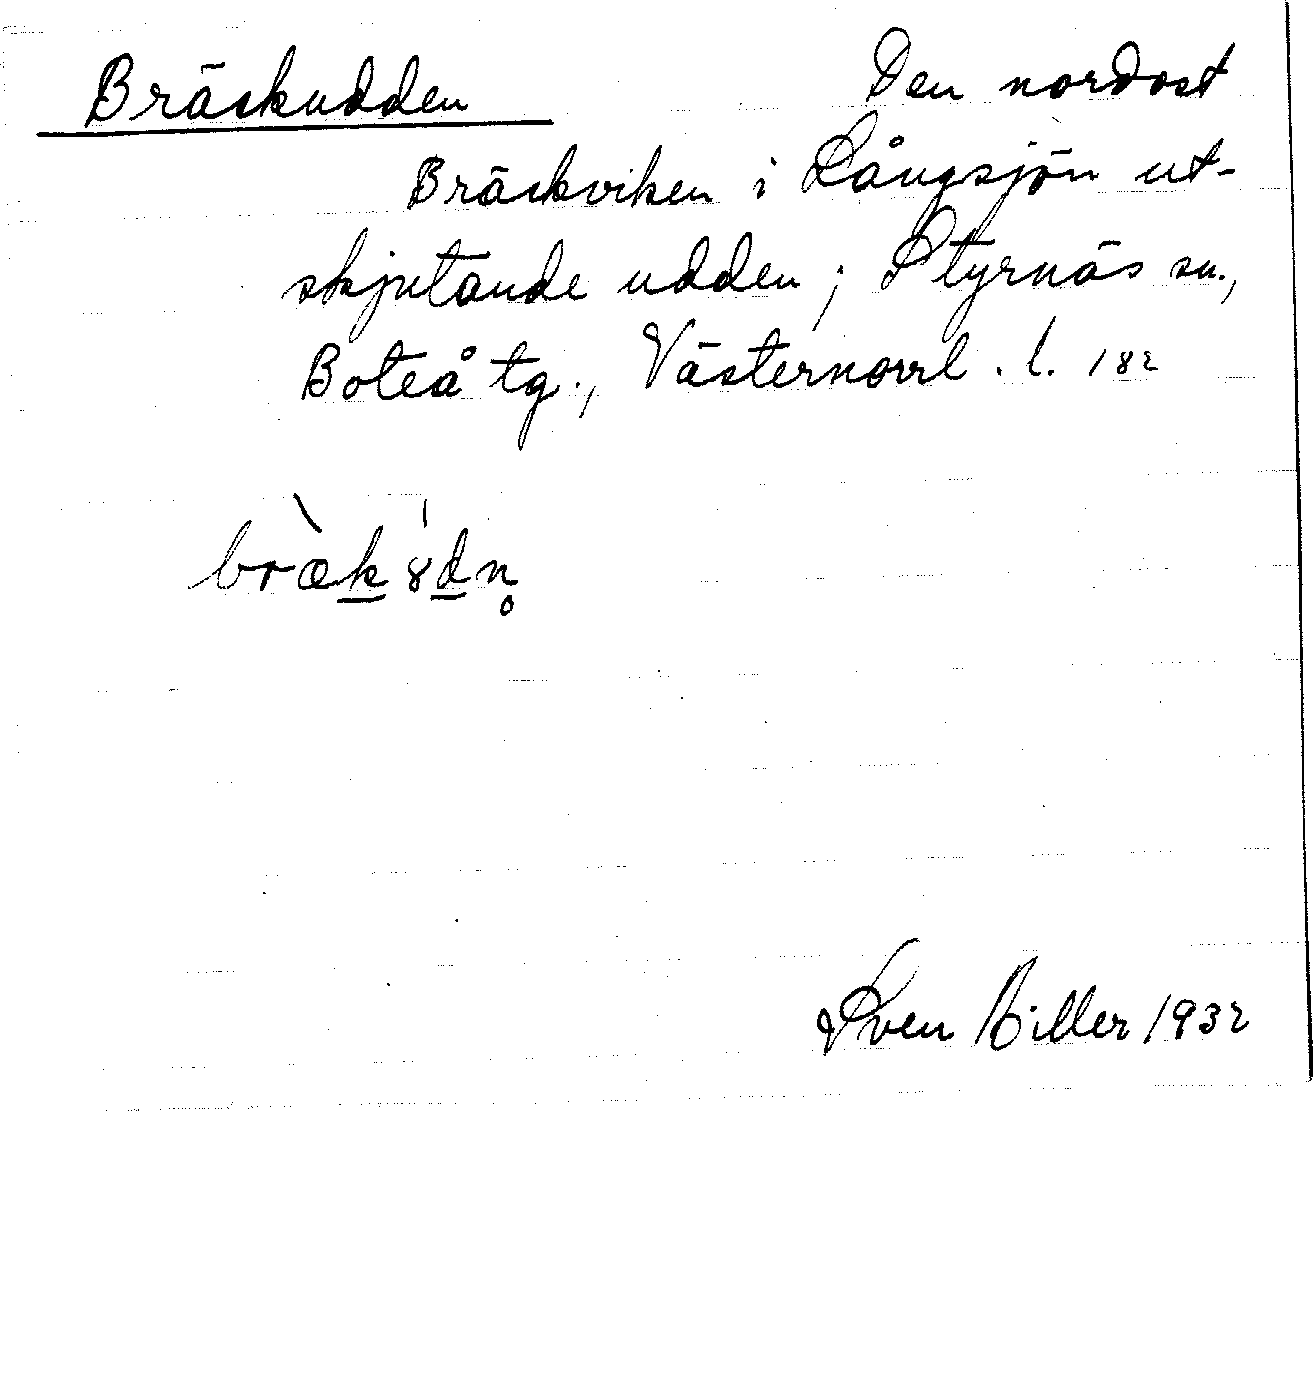 Bräckudden Den nordost
Bräckviken i Långsjön ut-
skjutande udden; Styrnäs sn.,
Boteå tg., Västernorrl. l. 182
bræ̀k8dn̥
Sven Biller 1932